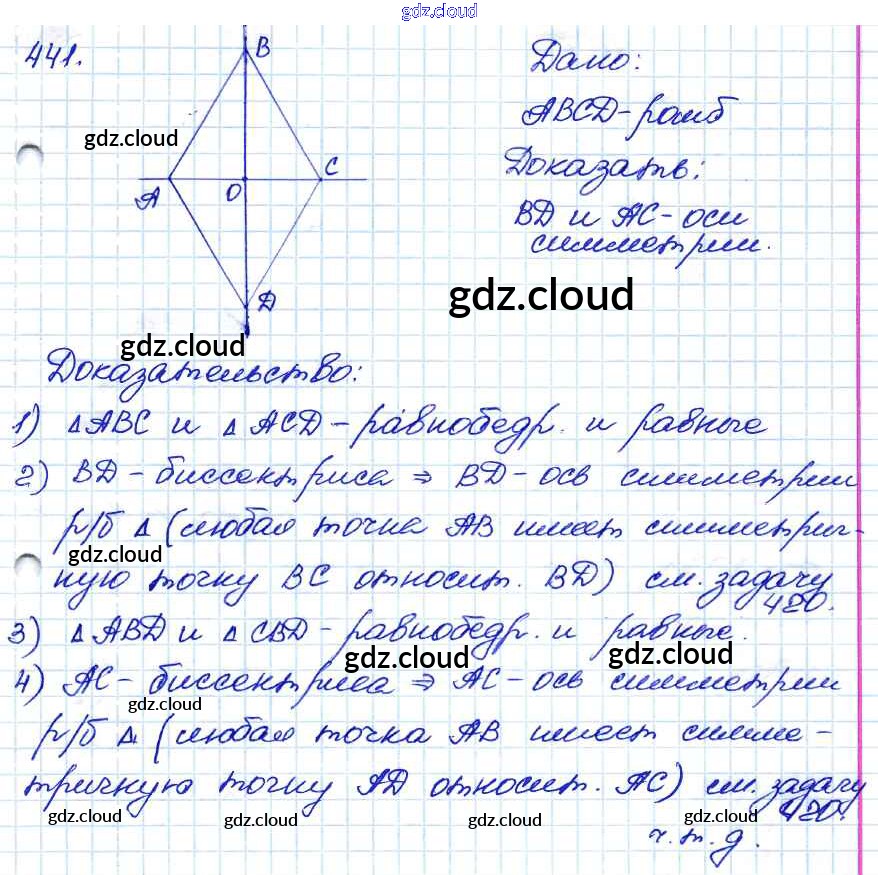 gdz.cloud
441.
B
Дано:
ABCD-ромб
gdz.cloud
Доказать:
C
A
O
BD и AC-оси
симметрии.
D
gdz.cloud
gdz.cloud
Доказательство:
1) △ABC и △ACD-равнобедр. и равные
2) BD-биссектриса ⇒ BD-ось симметрии
р/б △ (любая точка AB имеет симметрич-
gdz.cloud
ную точку BC относит. BD) см. задачу
420.
3) △ABD и △CBD-равнобедр. и равные.
gdz.cloud
gdz.cloud
4) AC-биссектриса ⇒ AC-ось симметрии
gdz.cloud
р/б △ (любая точка AB имеет симме-
тричную точку AD относит. AC) см. задачу
420.
gdz.cloud
gdz.cloud
gdz.cloud
gdz.cloud
ч.т.д.